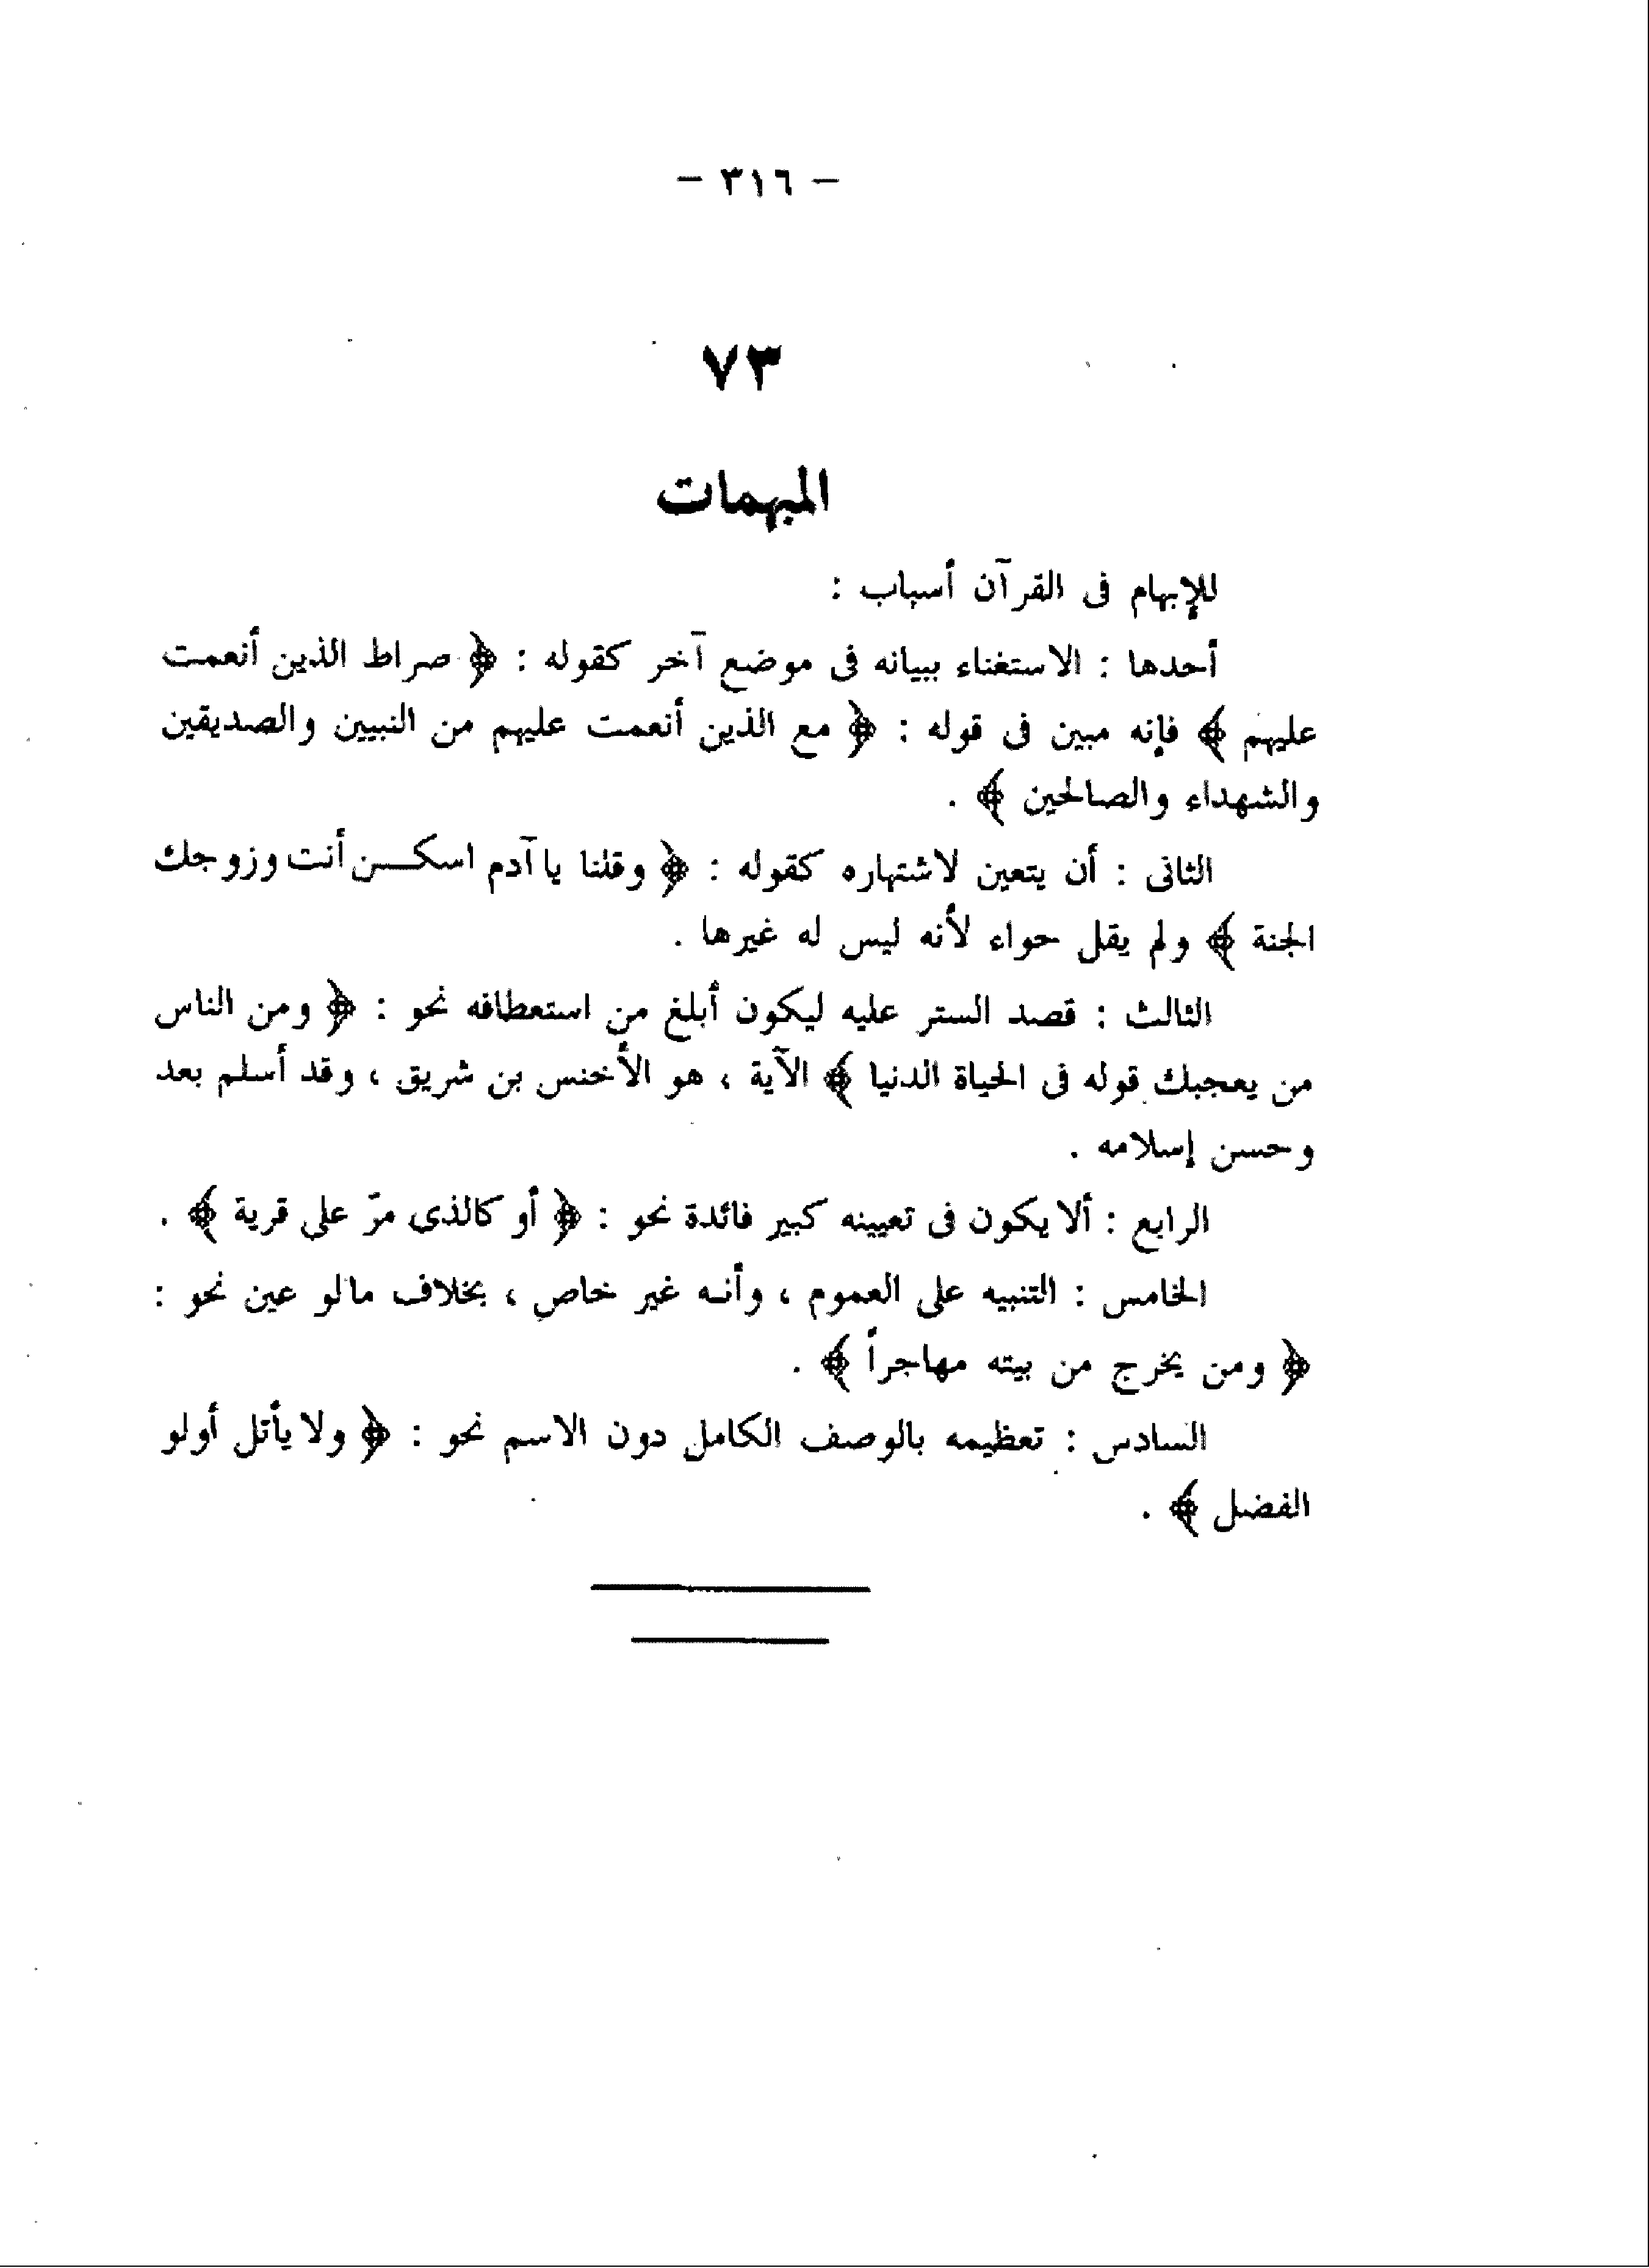 – ٣١٦ –
٧٣
المبهمات
للإبهام فى القرآن أسباب :
أحدها : الاستغناء ببيانه فى موضع آخر كقوله : ﴿ صراط الذين أنعمت
عليهم ﴾ فإنه مبين فى قوله : ﴿ مع الذين أنعمت عليهم من النبيين والصديقين
والشهداء والصالحين ﴾ .
الثانى : أن يتعين لاشتهاره كقوله : ﴿ وقلنا يا آدم اسكـن أنت وزوجك
الجنة ﴾ ولم يقل حواء لأنه ليس له غيرها .
الثالث : قصد الستر عليه ليكون أبلغ من استعطافه نحو : ﴿ ومن الناس
من يعجبك قوله فى الحياة الدنيا ﴾ الآية ، هو الأخنس بن شريق ، وقد أسلم بعد
وحسن إسلامه .
الرابع : ألا يكون فى تعيينه كبير فائدة نحو : ﴿ أو كالذى مرّ على قرية ﴾ .
الخامس : التنبيه على العموم ، وأنـه غير خاص ، بخلاف ما لو عين نحو :
﴿ ومن يخرج من بيته مهاجراً ﴾ .
السادس : تعظيمه بالوصف الكامل دون الاسم نحو : ﴿ ولا يأتل أولو
الفضل ﴾ .